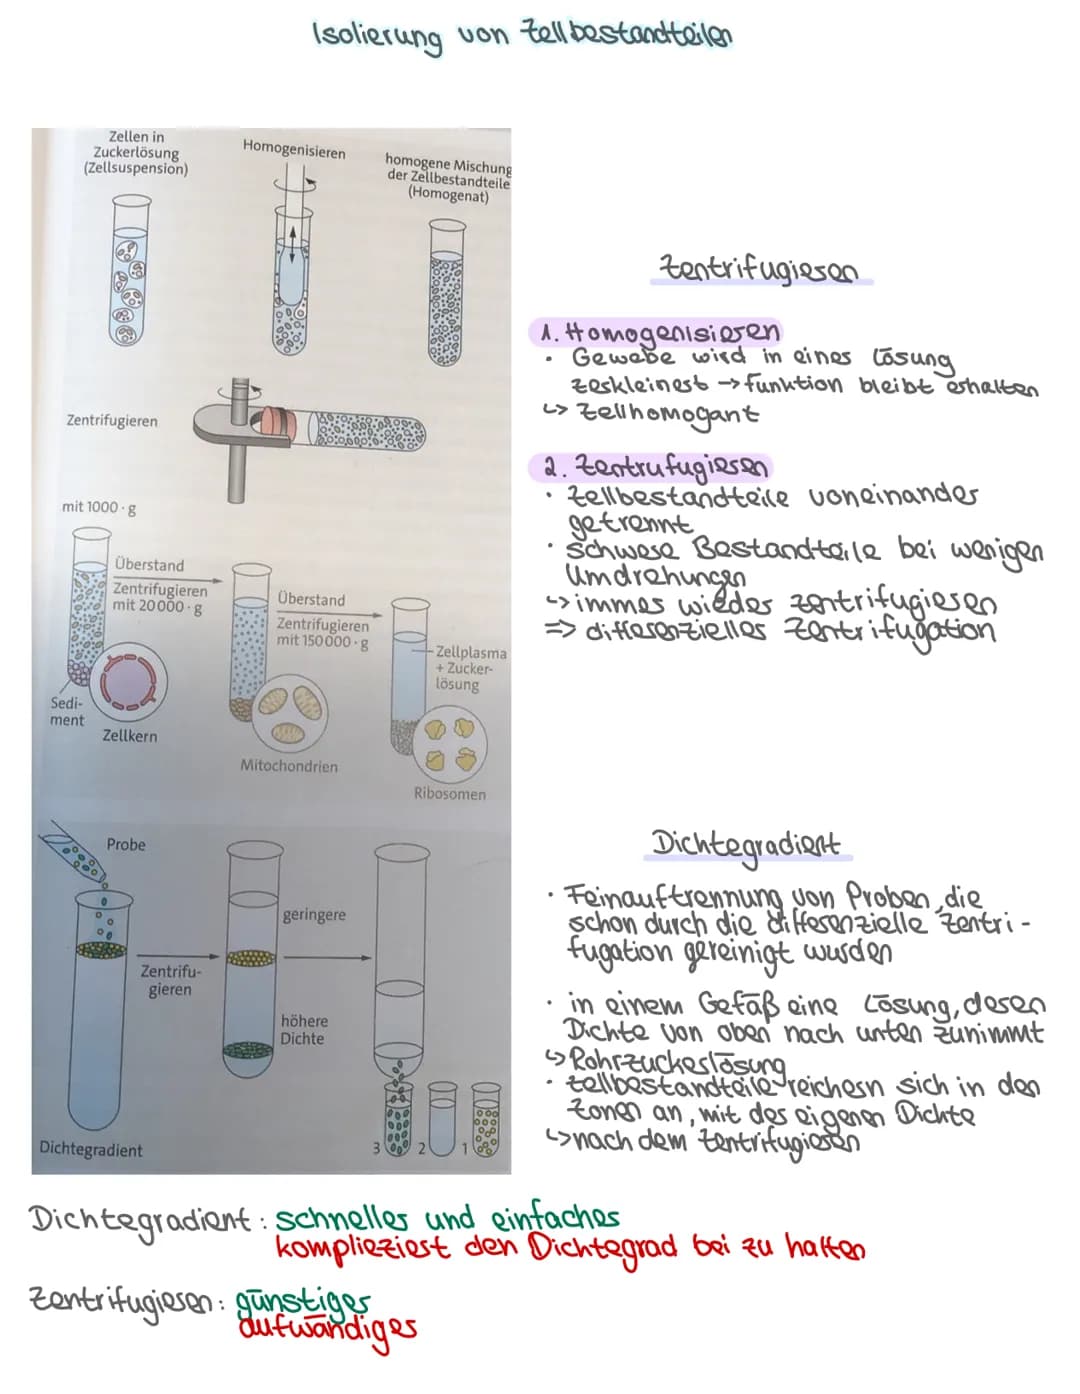 Isolierung von Zellbestandteilen
Zellen in
Zuckerlösung
(Zellsuspension)
Homogenisieren
homogene Mischung
der Zellbestandteile
(Homogenat)
Zentrifugieren
mit 1000·g
Überstand
Zentrifugieren
mit 20000·g
Überstand
Zentrifugieren
mit 150000·g
Zellplasma
+ Zucker-
lösung
Sedi-
ment
Zellkern
Mitochondrien
Ribosomen
Probe
Zentrifu-
gieren
geringere
höhere
Dichte
3 2 1
Dichtegradient
Zentrifugieren
1. Homogenisieren
• Gewebe wird in einer Lösung
zerkleinert → Funktion bleibt erhalten
↳ Zellhomogant
2. Zentrufugieren
• Zellbestandteile voneinander
getrennt
• schwere Bestandteile bei wenigen
Umdrehungen
↳ immer wieder zentrifugieren
⇒ differenzielles Zentrifugation
Dichtegradient
• Feinauftrennung von Proben, die
schon durch die differenzielle Zentri-
fugation gereinigt wurden
• in einem Gefäß eine Lösung, deren
Dichte von oben nach unten zunimmt
↳ Rohrzuckerlösung
• Zellbestandteile reichern sich in den
Zonen an, mit der eigenen Dichte
↳ nach dem Zentrifugieren
Dichtegradient: schneller und einfacher
komplieziert den Dichtegrad bei zu halten
Zentrifugieren: günstiger
aufwändiger